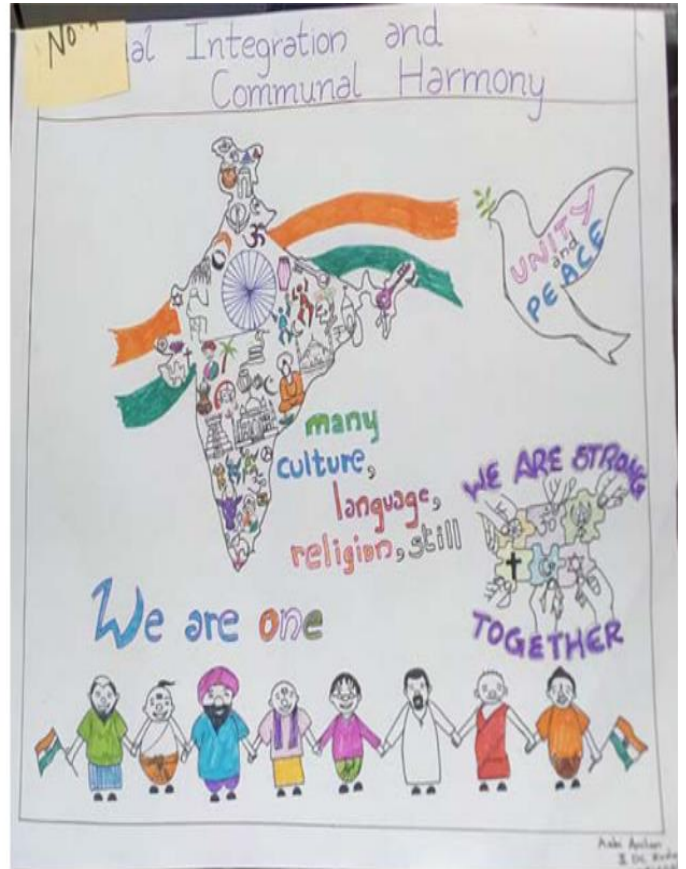 No.
al Integration and
Communal Harmony
UNITY
and
PEACE
many
culture,
language,
religion, still
We are one
WE ARE STRONG
TOGETHER